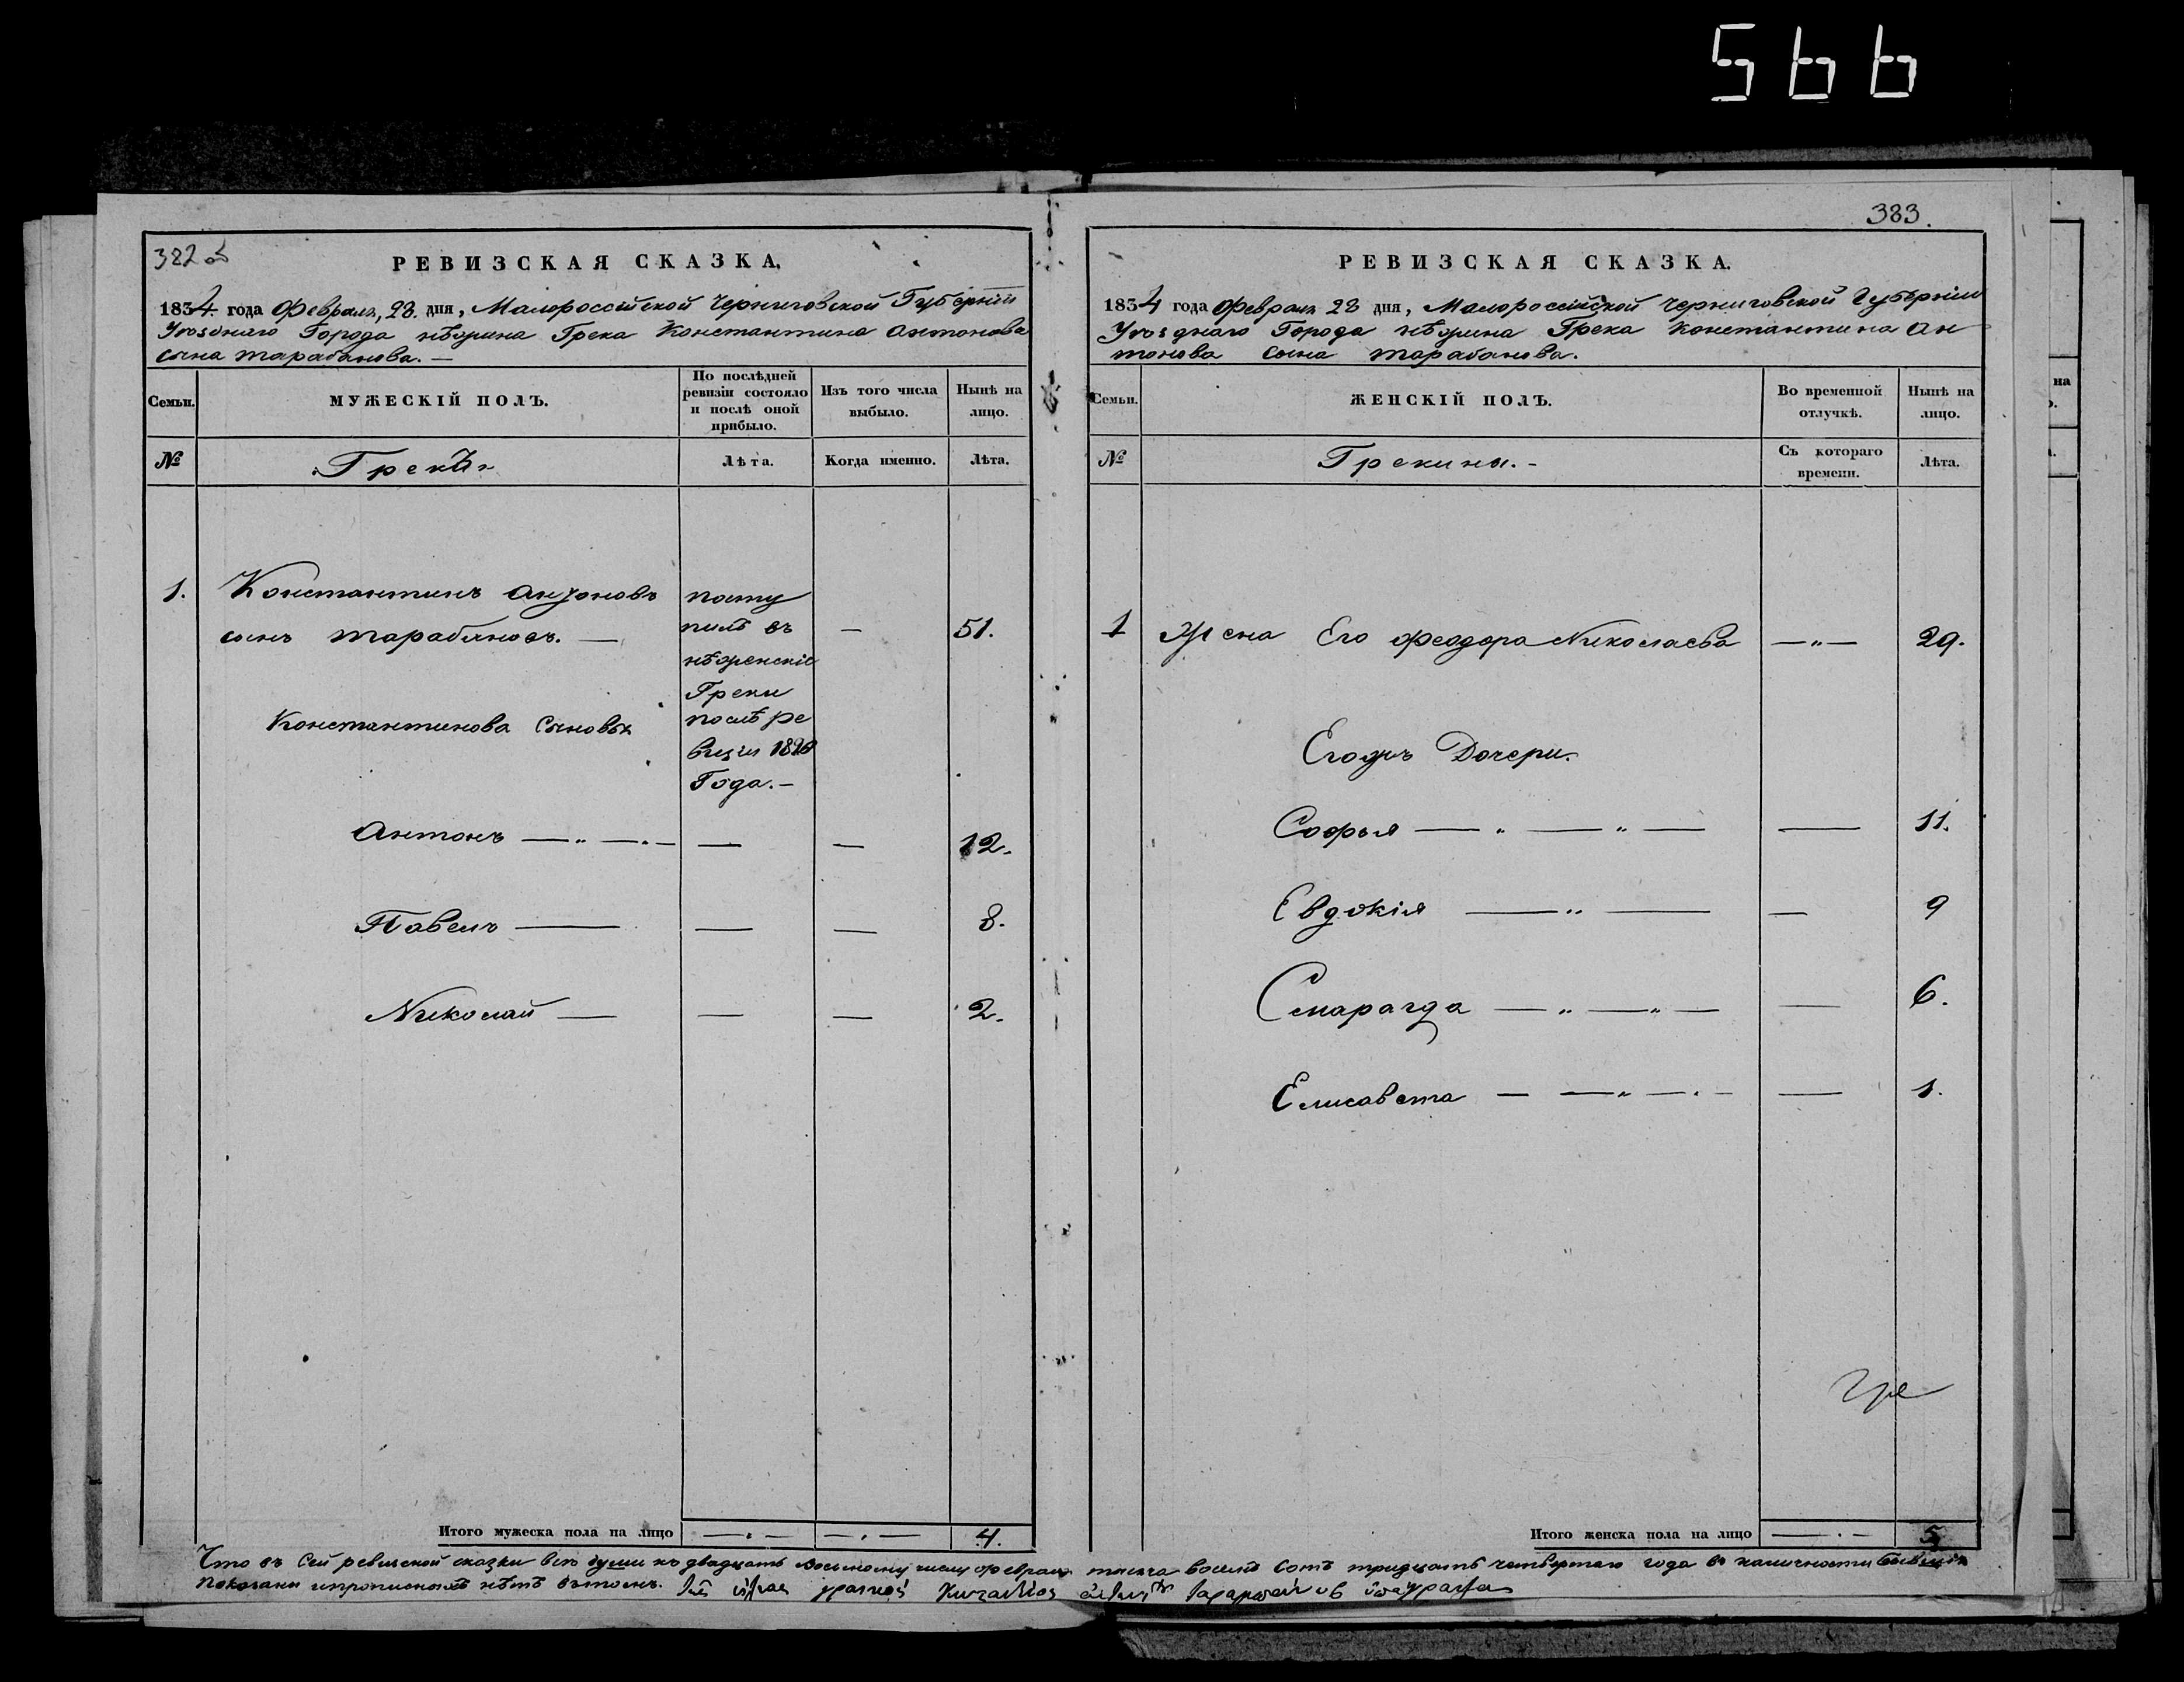 566
382 об
РЕВИЗСКАЯ СКАЗКА.
1834 года Февраля, 28. дня, Малороссійской Черниговской Губерніи
Уѣзднаго Города нѣжина Грека Константина Антонова
сына тарабанова. —
Семьи.
МУЖЕСКІЙ ПОЛЪ.
По послѣдней ревизіи состояло и послѣ оной прибыло.
Изъ того числа выбыло.
Нынѣ на лицо.
№
Греки
Лѣта.
Когда именно.
Лѣта.
1. Константинъ Антоновъ
сынъ тарабановъ. — — 51.
посту
пилъ въ
нѣженскіе
Греки
послѣ ре
визіи
Года. —
Константинова Сыновья
Антонъ — „ — „ — — — 12.
Павелъ — — — 8.
Николай — — — 2.
Итого мужеска пола на лицо — . — — . — 4.
383.
РЕВИЗСКАЯ СКАЗКА.
1834 года Февраля 28 дня, Малороссійской Черниговской Губерніи
Уѣзднаго Города нѣжина Грека Константина Ан
тонова сына тарабанова.
Семьи.
ЖЕНСКІЙ ПОЛЪ.
Во временной отлучкѣ.
Нынѣ на лицо.
№
Грекини. -
Съ котораго времени.
Лѣта.
1 Жена Его Феодора Николаева — „ — 29.
Егожъ Дочери.
Софья — „ — „ — — 11.
Евдокія — „ — — 9
Смарагда — „ — „ — — 6.
Елисавета — — „ — . — — 1.
Итого женска пола на лицо — . — 5
Что въ сей ревизской сказки всѣ души къ двадцать восьмому числу Февраля тысяча восемь сотъ тридцать четвертаго года въ наличности бывшія
показаны и прописныхъ нѣтъ въ томъ.